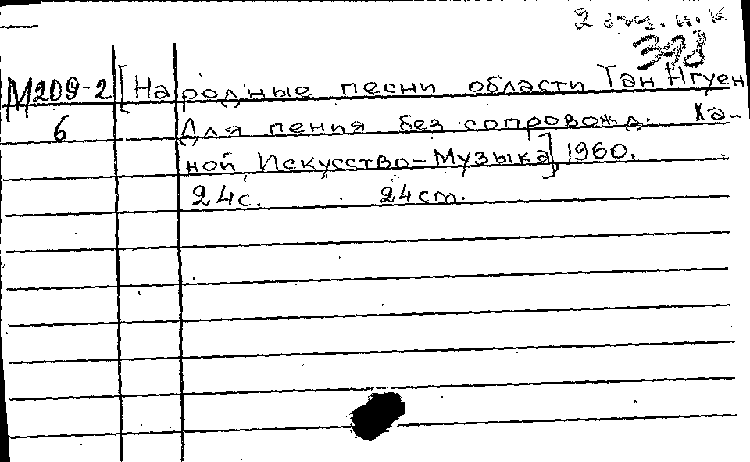 2 отд. н. к
398
М209-2 [Народные песни области Тан Нгуен
6 Для пения без сопровожд. Ха-
ной, Искусство-Музыка], 1960.
24с. 24см.